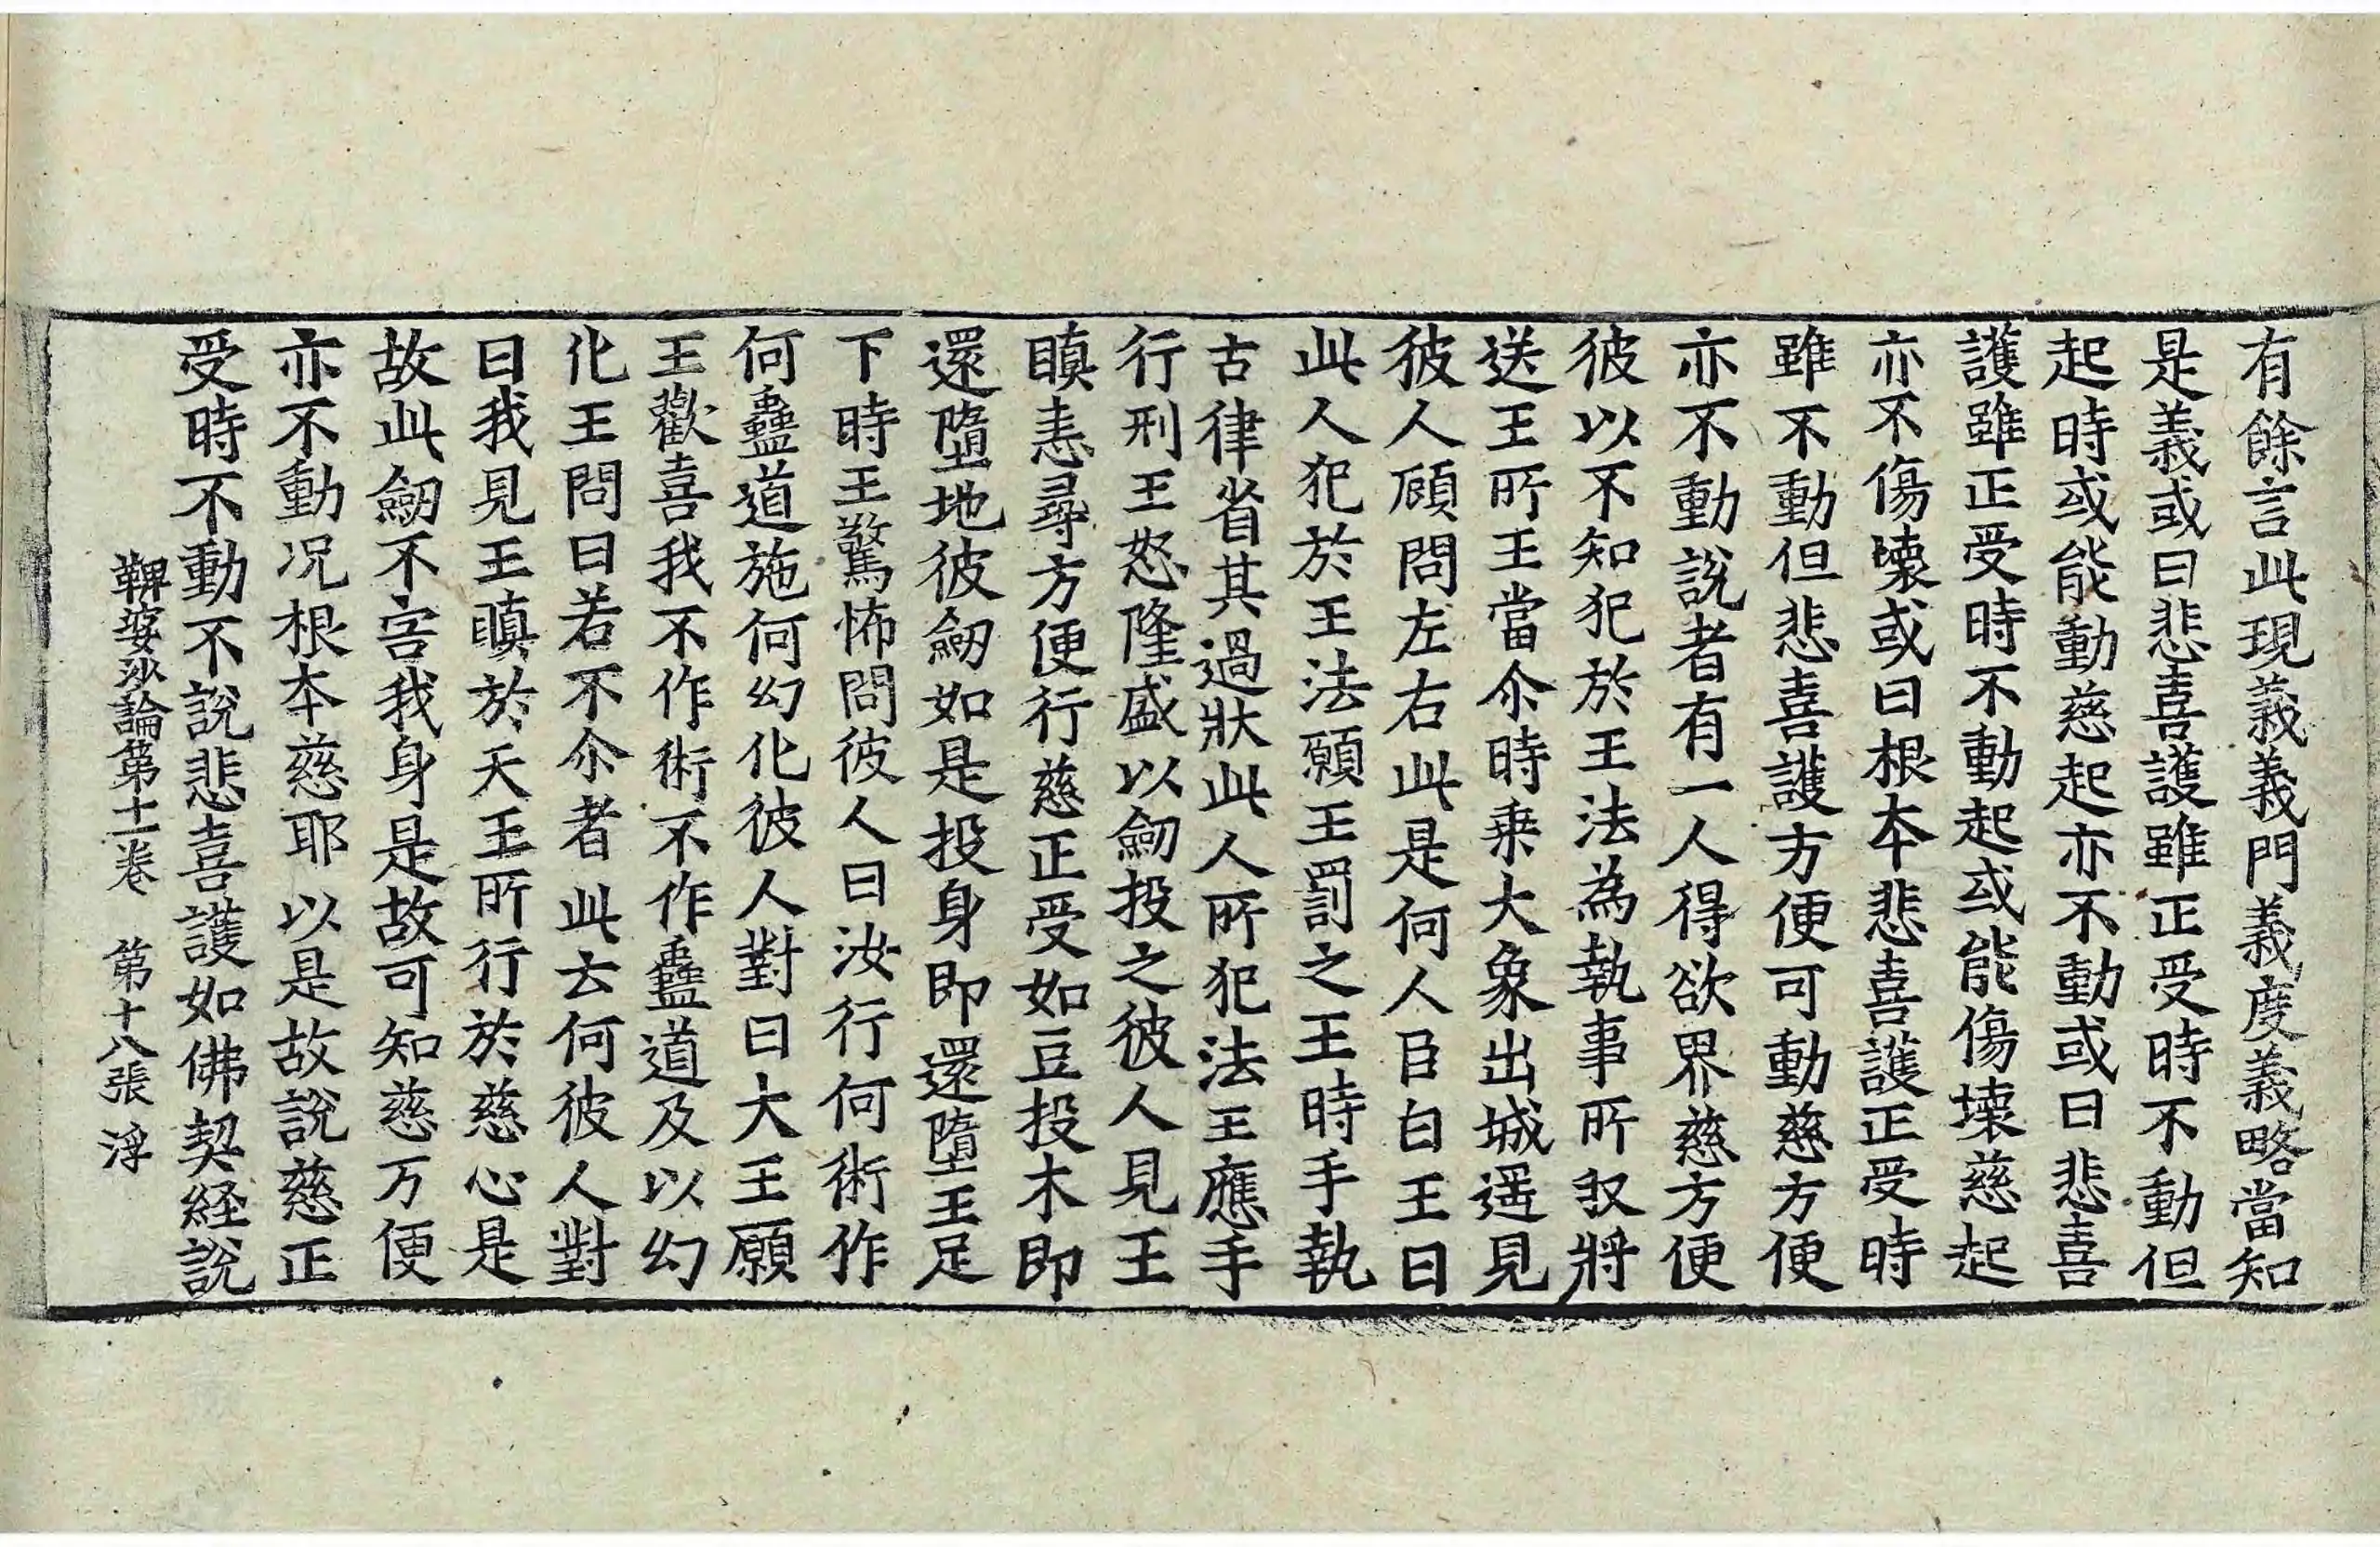 有餘言此現義義門義度義略當知
是義或曰悲喜護雖正受時不動但
起時或能動慈起亦不動或曰悲喜
護雖正受時不動起或能傷壞慈起
亦不傷壞或曰根本悲喜護正受時
雖不動但悲喜護方便可動慈方便
亦不動說者有一人得欲界慈方便
彼以不知犯於王法為執事所収將
送王所王當尒時乗大象出城遥見
彼人顧問左右此是何人臣白王曰
此人犯於王法願王罰之王時手執
古律省其過狀此人所犯法王應手
行刑王怒隆盛以劒投之彼人見王
瞋恚尋方便行慈正受如豆投木即
還墮地彼劒如是投身即還墮王足
下時王驚怖問彼人曰汝行何術作
何蠱道施何幻化彼人對曰大王願
王歡喜我不作術不作蠱道及以幻
化王問曰若不尒者此去何彼人對
曰我見王瞋於天王所行於慈心是
故此劒不害我身是故可知慈方便
亦不動况根本慈耶以是故說慈正
受時不動不說悲喜護如佛契経說
鞞婆沙論第十一卷　第十八張　浮